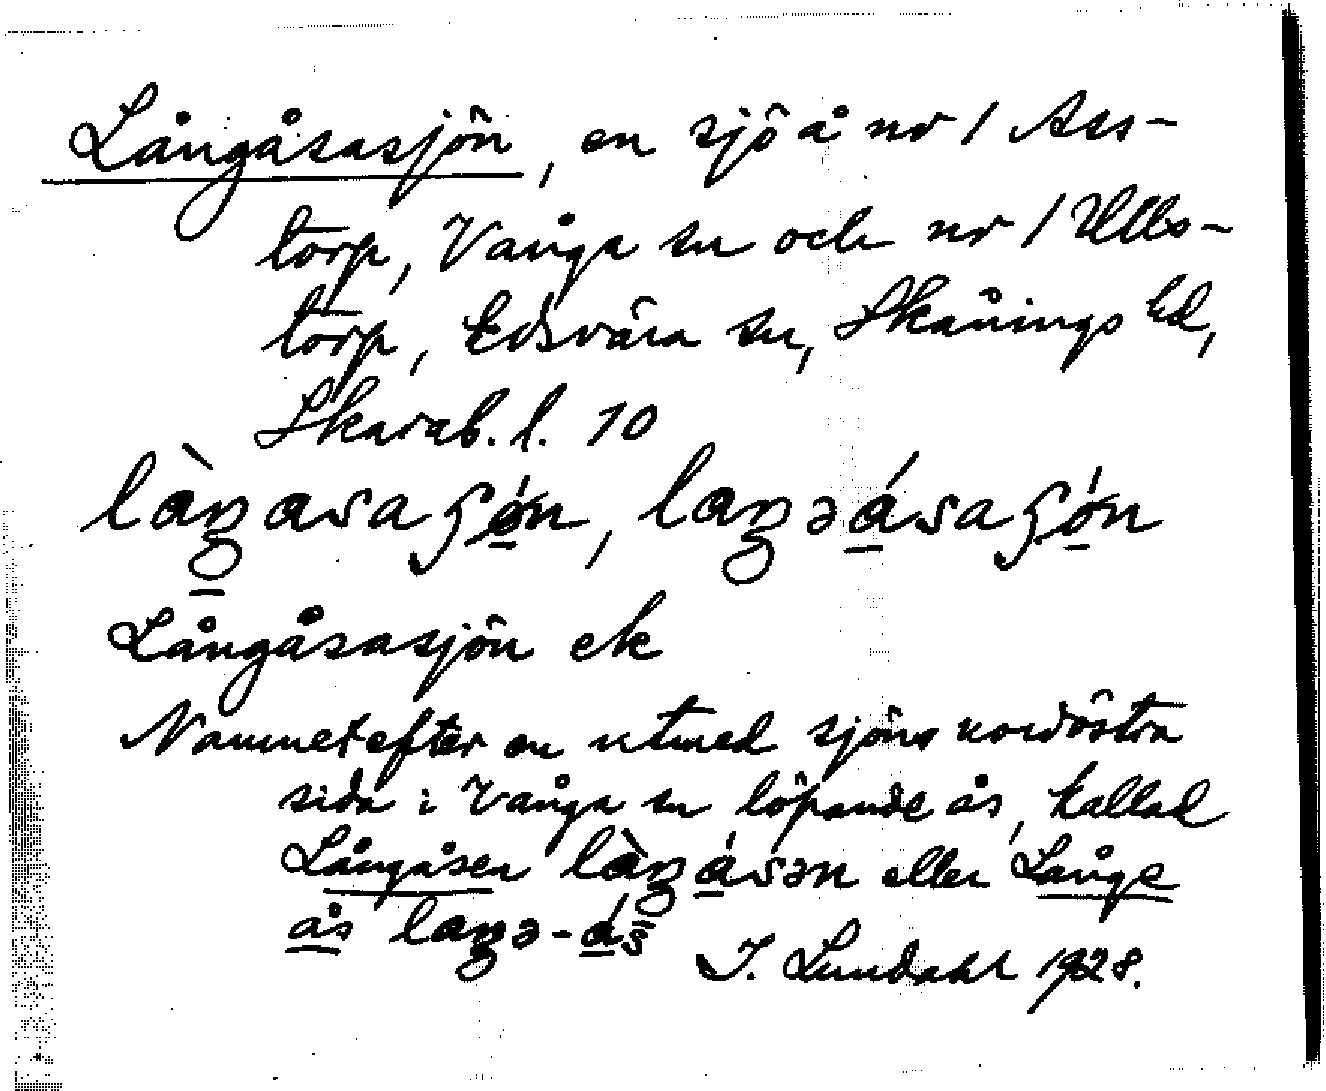 Långåsasjön, en sjö å nr 1 Ass-
torp, Vånga sn och nr 1 Ulls-
torp, Edsvära sn, Skånings hd,
Skarab. l. 10
làŋasaʃǿn, laŋəásaʃǿn
Långåsasjön ek
Namnet efter en utmed sjöns nordöstra
sida i Vånga sn löpande ås, kallad
Långåsen làŋásən eller Långe
ås laŋə-ás
I. Lundahl 1928.